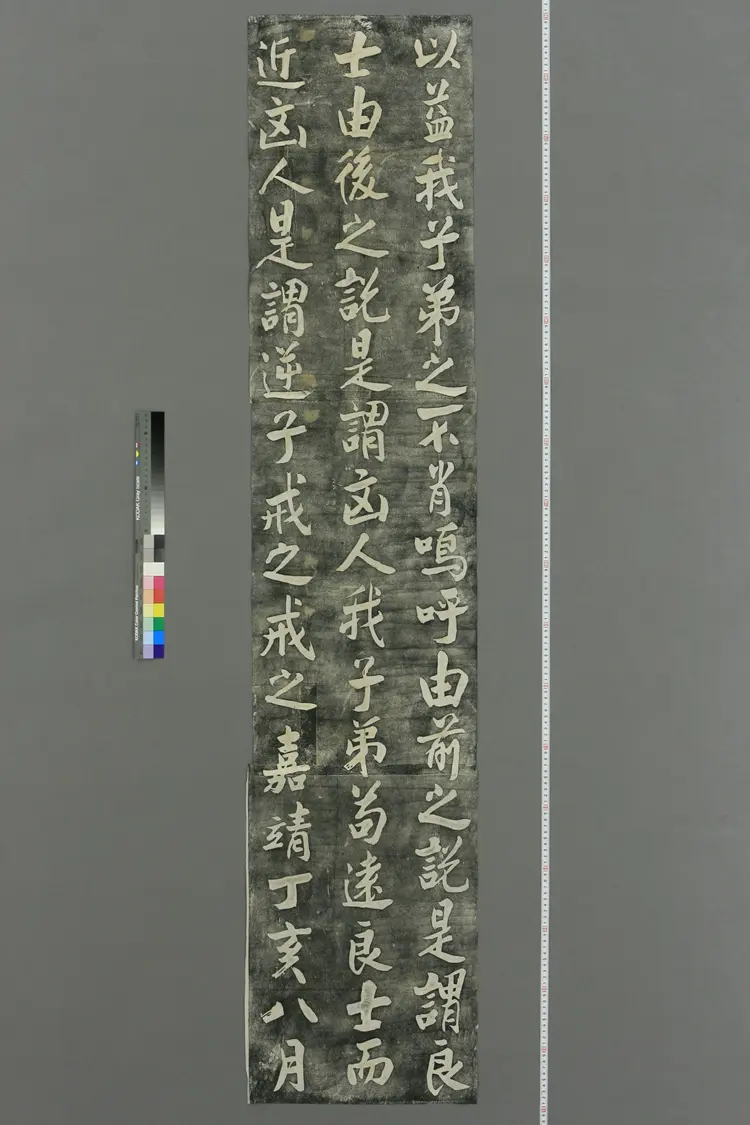 以益我子弟之不肖嗚呼由前之説是謂良
士由後之説是謂㐫人我子弟苟遠良士而
近㐫人是謂逆子戒之戒之嘉靖丁亥八月